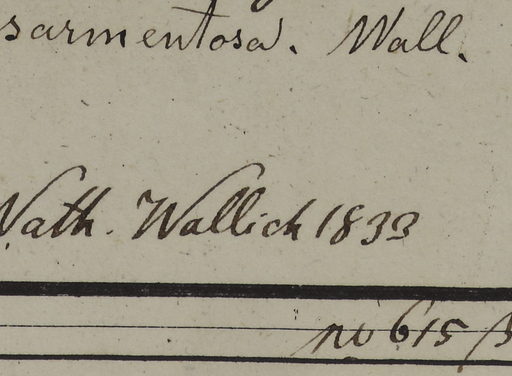 sarmentosa. Wall.
Nath. Wallich 1833
no 615 β